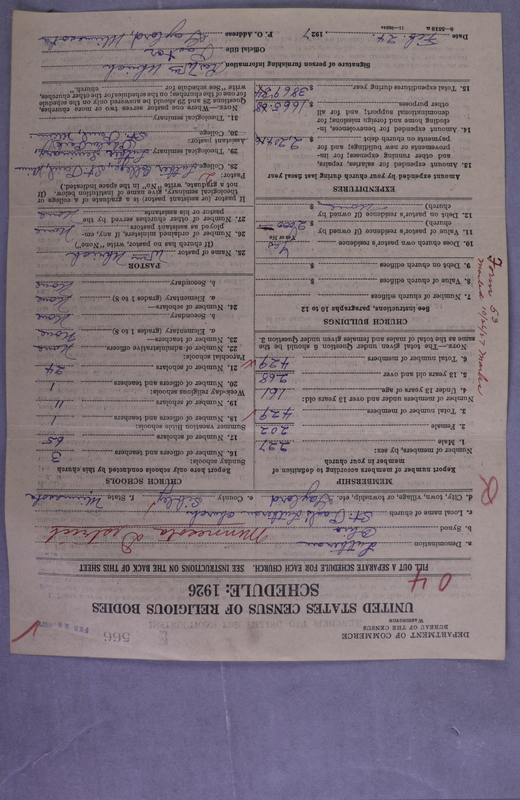 DEPARTMENT OF COMMERCE
BUREAU OF THE CENSUS
WASHINGTON
566
UNITED STATES CENSUS OF RELIGIOUS BODIES
SCHEDULE: 1926
04
FILL OUT A SEPARATE SCHEDULE FOR EACH CHURCH. SEE INSTRUCTIONS ON THE BACK OF THIS SHEET
a. Denomination Lutheran
b. Synod Ohio Minnesota District
c. Local name of church St. Paul's Lutheran Church
d. City, town, village, or township, etc. Gaylord e. County Sibley f. State Minnesota
MEMBERSHIP
Report number of members according to definition of member in your church
Number of members, by sex:
1. Male 227
2. Female 202
3. Total number of members 429
Number of members under and over 13 years old:
4. Under 13 years of age 161
5. 13 years old and over 268
6. Total number of members 429
NOTE.—The total given under Question 6 should be the same as the total of males and females given under Question 3.
CHURCH BUILDINGS
See instructions, paragraphs 10 to 12
7. Number of church edifices
8. Value of church edifices $
9. Debt on church edifices $
10. Does church own pastor's residence Yes
Yes or No
11. Value of pastor's residence (if owned by church) $ 2000
12. Debt on pastor's residence (if owned by church) $ None
EXPENDITURES
Amount expended by your church during last fiscal year
13. Amount expended for salaries, repairs, and other running expenses; for improvements or new buildings; and for payments on church debt $
14. Amount expended for benevolences, including home and foreign missions; for denominational support; and for all other purposes $ 1665.68
15. Total expenditures during year $
CHURCH SCHOOLS
Report here only schools conducted by this church
Sunday schools:
16. Number of officers and teachers 3
17. Number of scholars 65
Summer vacation Bible schools:
18. Number of officers and teachers 1
19. Number of scholars 11
Weekday religious schools:
20. Number of officers and teachers 1
21. Number of scholars 24
Parochial schools:
22. Number of administrative officers None
23. Number of teachers—
a. Elementary (grades 1 to 8) None
b. Secondary None
24. Number of scholars—
a. Elementary (grades 1 to 8) None
b. Secondary None
PASTOR
25. Name of pastor Wm Ulbrich
(If church has no pastor, write "None")
26. Number of ordained ministers, if any, employed as assistant pastors: None
27. Number of other churches served by the pastor or his assistants. None
If pastor (or assistant pastor) is a graduate of a college or theological seminary, give name of institution below. (If not a graduate, write "No" in the space indicated.)
Pastor:
28. College
29. Theological seminary
30. College
31. Theological seminary
NOTE.—Where one pastor serves two or more churches, Questions 28 and 29 should be answered only on the schedule for one of the churches; on the schedules for the other churches, write "See schedule for church."
Signature of person furnishing information Wm Ulbrich
Official title Pastor
P. O. Address Gaylord, Minnesota
Date Feb. 24. 1927
Form 53